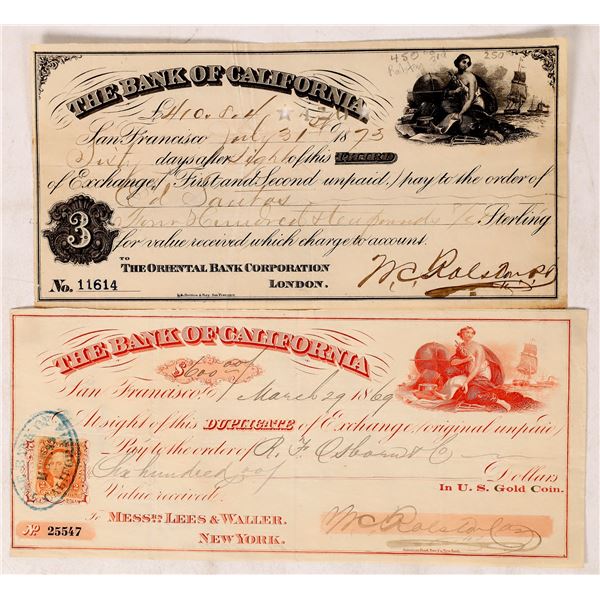 450 250
THE BANK OF CALIFORNIA
£410.8.4
San Francisco July 31st 1873
Sixty days after Sight of this THIRD
of Exchange, (First and Second unpaid,) pay to the order of
Ed Santos
Four Hundred & ten pounds Sterling
3
for value received which charge to account.
TO
THE ORIENTAL BANK CORPORATION
LONDON.
W.C. Ralston
No. 11614
THE BANK OF CALIFORNIA
$600 00/
San Francisco, March 29 1869
At sight of this DUPLICATE of Exchange (original unpaid)
Pay to the order of R. F. Osborn & Co
Six hundred Dollars
In U.S. Gold Coin.
Value received.
To MESSRS. LEES & WALLER.
NEW YORK.
W.C. Ralston
No 25547